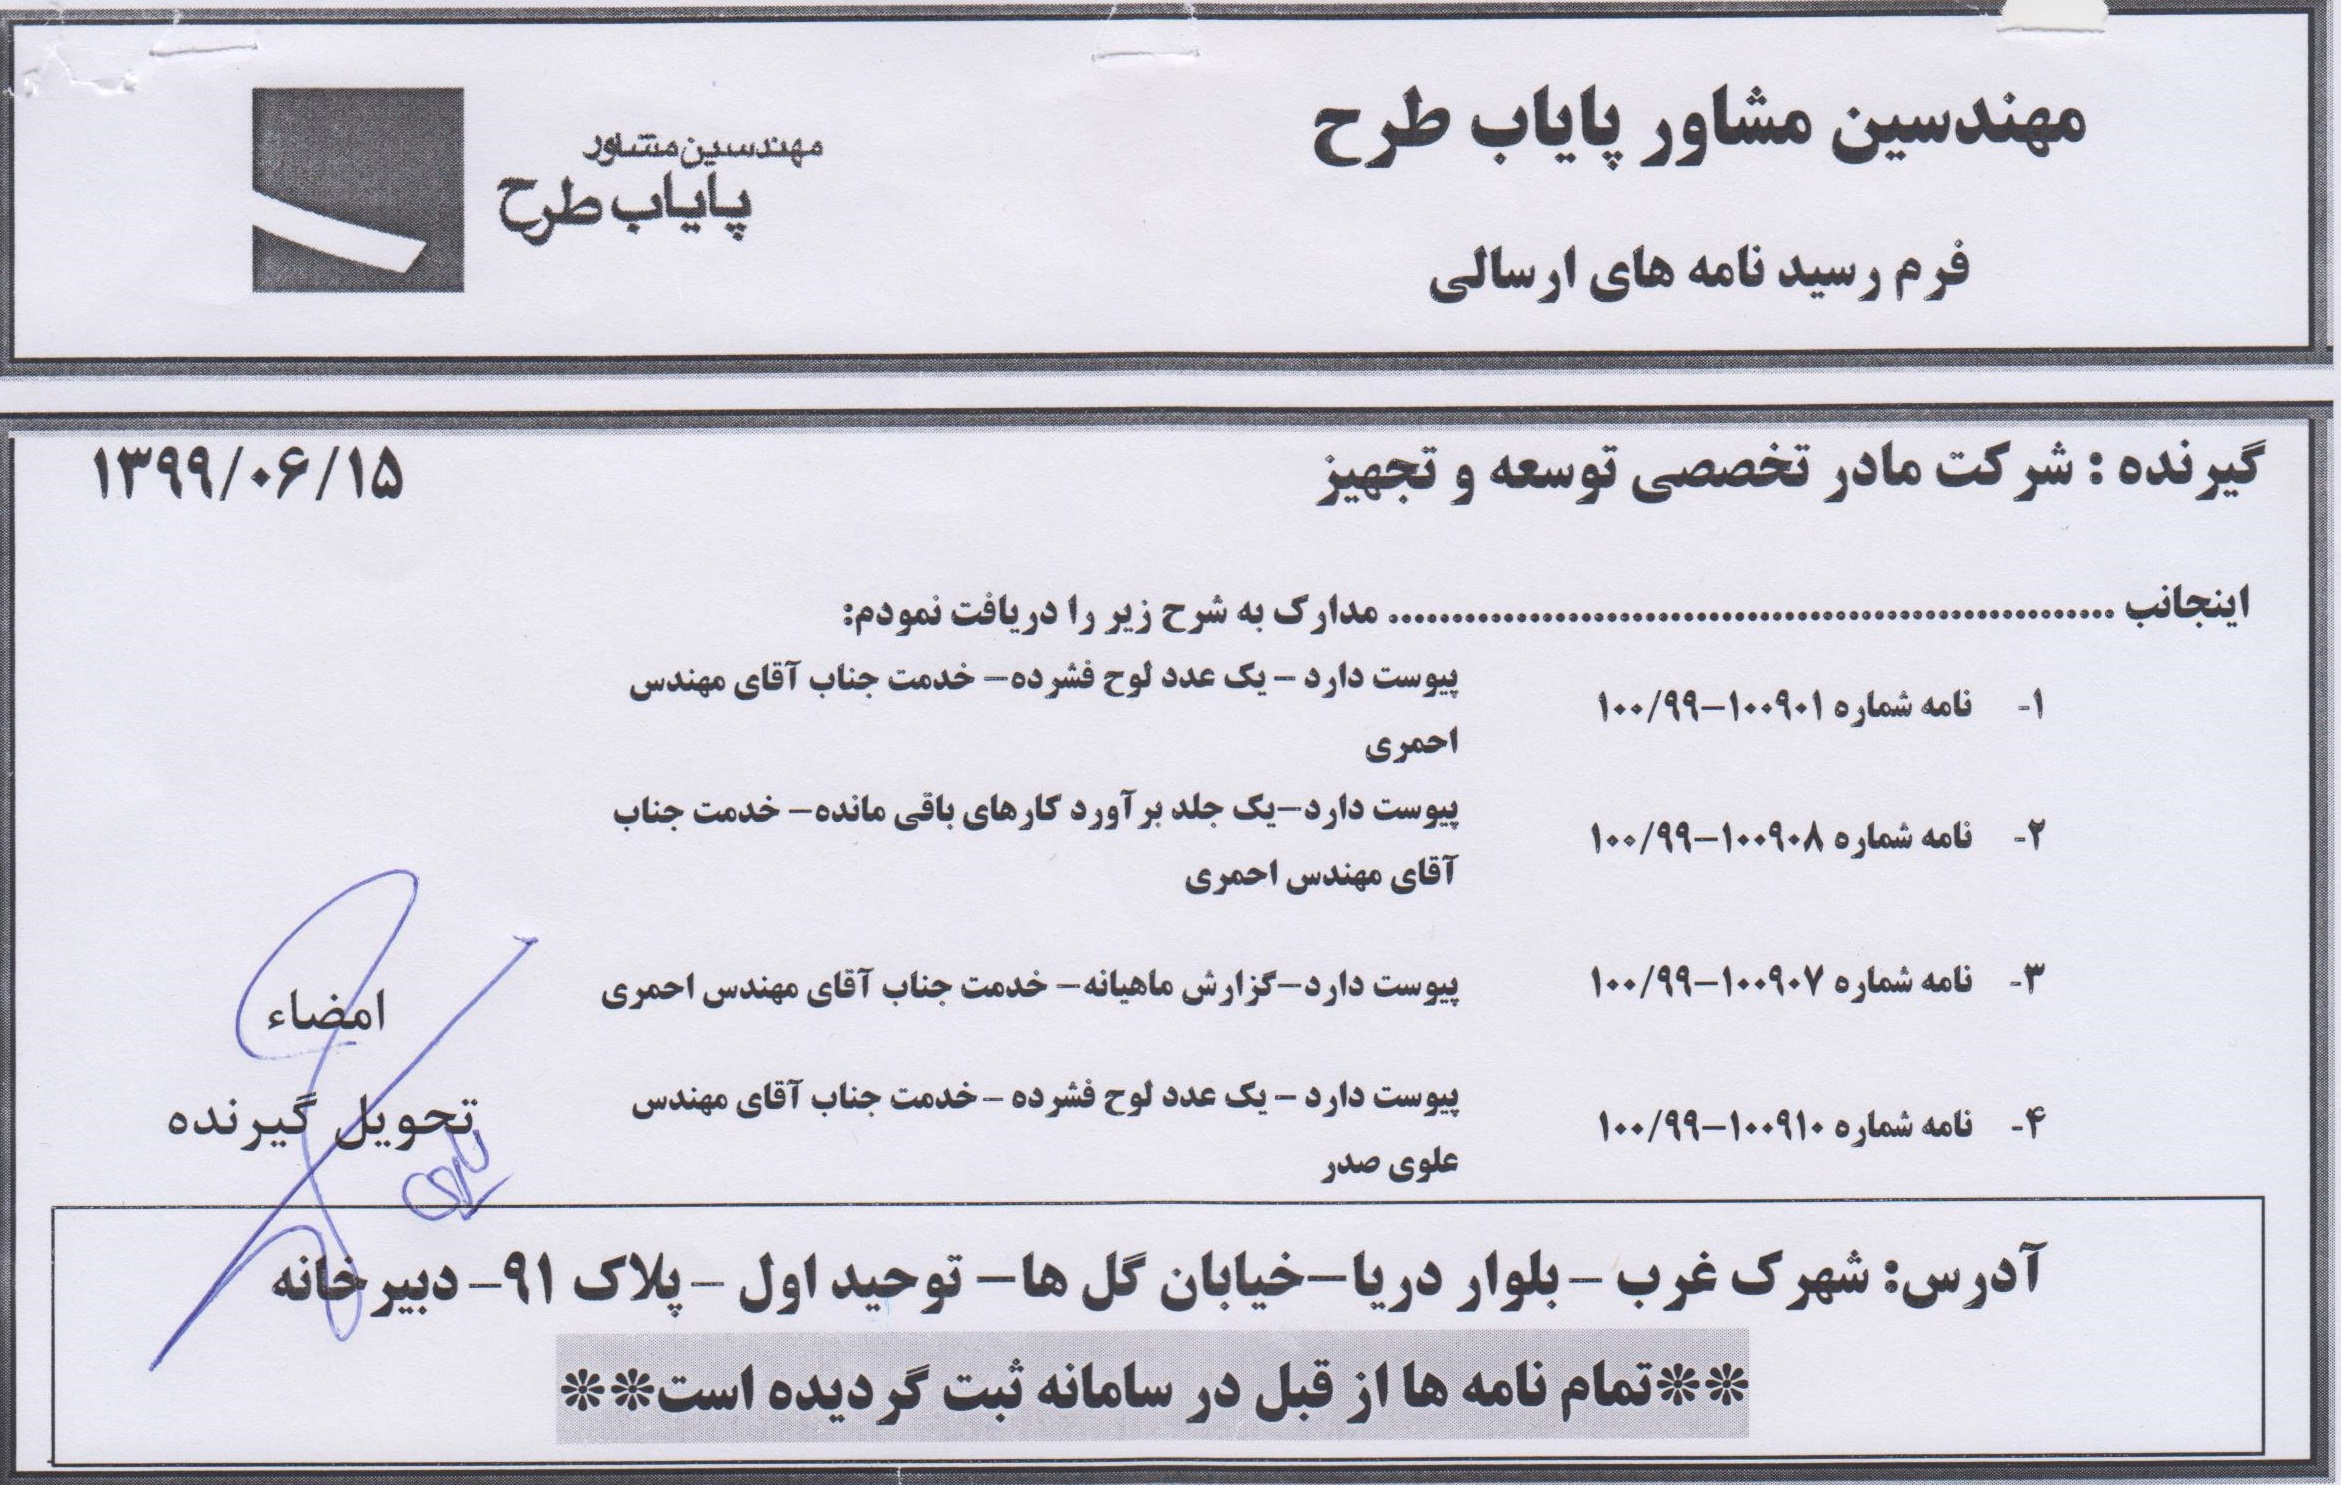 مهندسین مشاور پایاب طرح
مهندسین مشاور
پایاب طرح
فرم رسید نامه های ارسالی
گیرنده : شرکت مادر تخصصی توسعه و تجهیز
۱۳۹۹/۰۶/۱۵
اینجانب ........................................................ مدارک به شرح زیر را دریافت نمودم:
۱- نامه شماره ۱۰۰۹۰۱–۱۰۰/۹۹
پیوست دارد – یک عدد لوح فشرده– خدمت جناب آقای مهندس
احمری
۲- نامه شماره ۱۰۰۹۰۸–۱۰۰/۹۹
پیوست دارد–یک جلد برآورد کارهای باقی مانده– خدمت جناب
آقای مهندس احمری
۳- نامه شماره ۱۰۰۹۰۷–۱۰۰/۹۹
پیوست دارد–گزارش ماهیانه– خدمت جناب آقای مهندس احمری
۴- نامه شماره ۱۰۰۹۱۰–۱۰۰/۹۹
پیوست دارد – یک عدد لوح فشرده –خدمت جناب آقای مهندس
علوی صدر
امضاء
تحویل گیرنده
آدرس: شهرک غرب – بلوار دریا–خیابان گل ها– توحید اول – پلاک ۹۱– دبیرخانه
**تمام نامه ها از قبل در سامانه ثبت گردیده است**